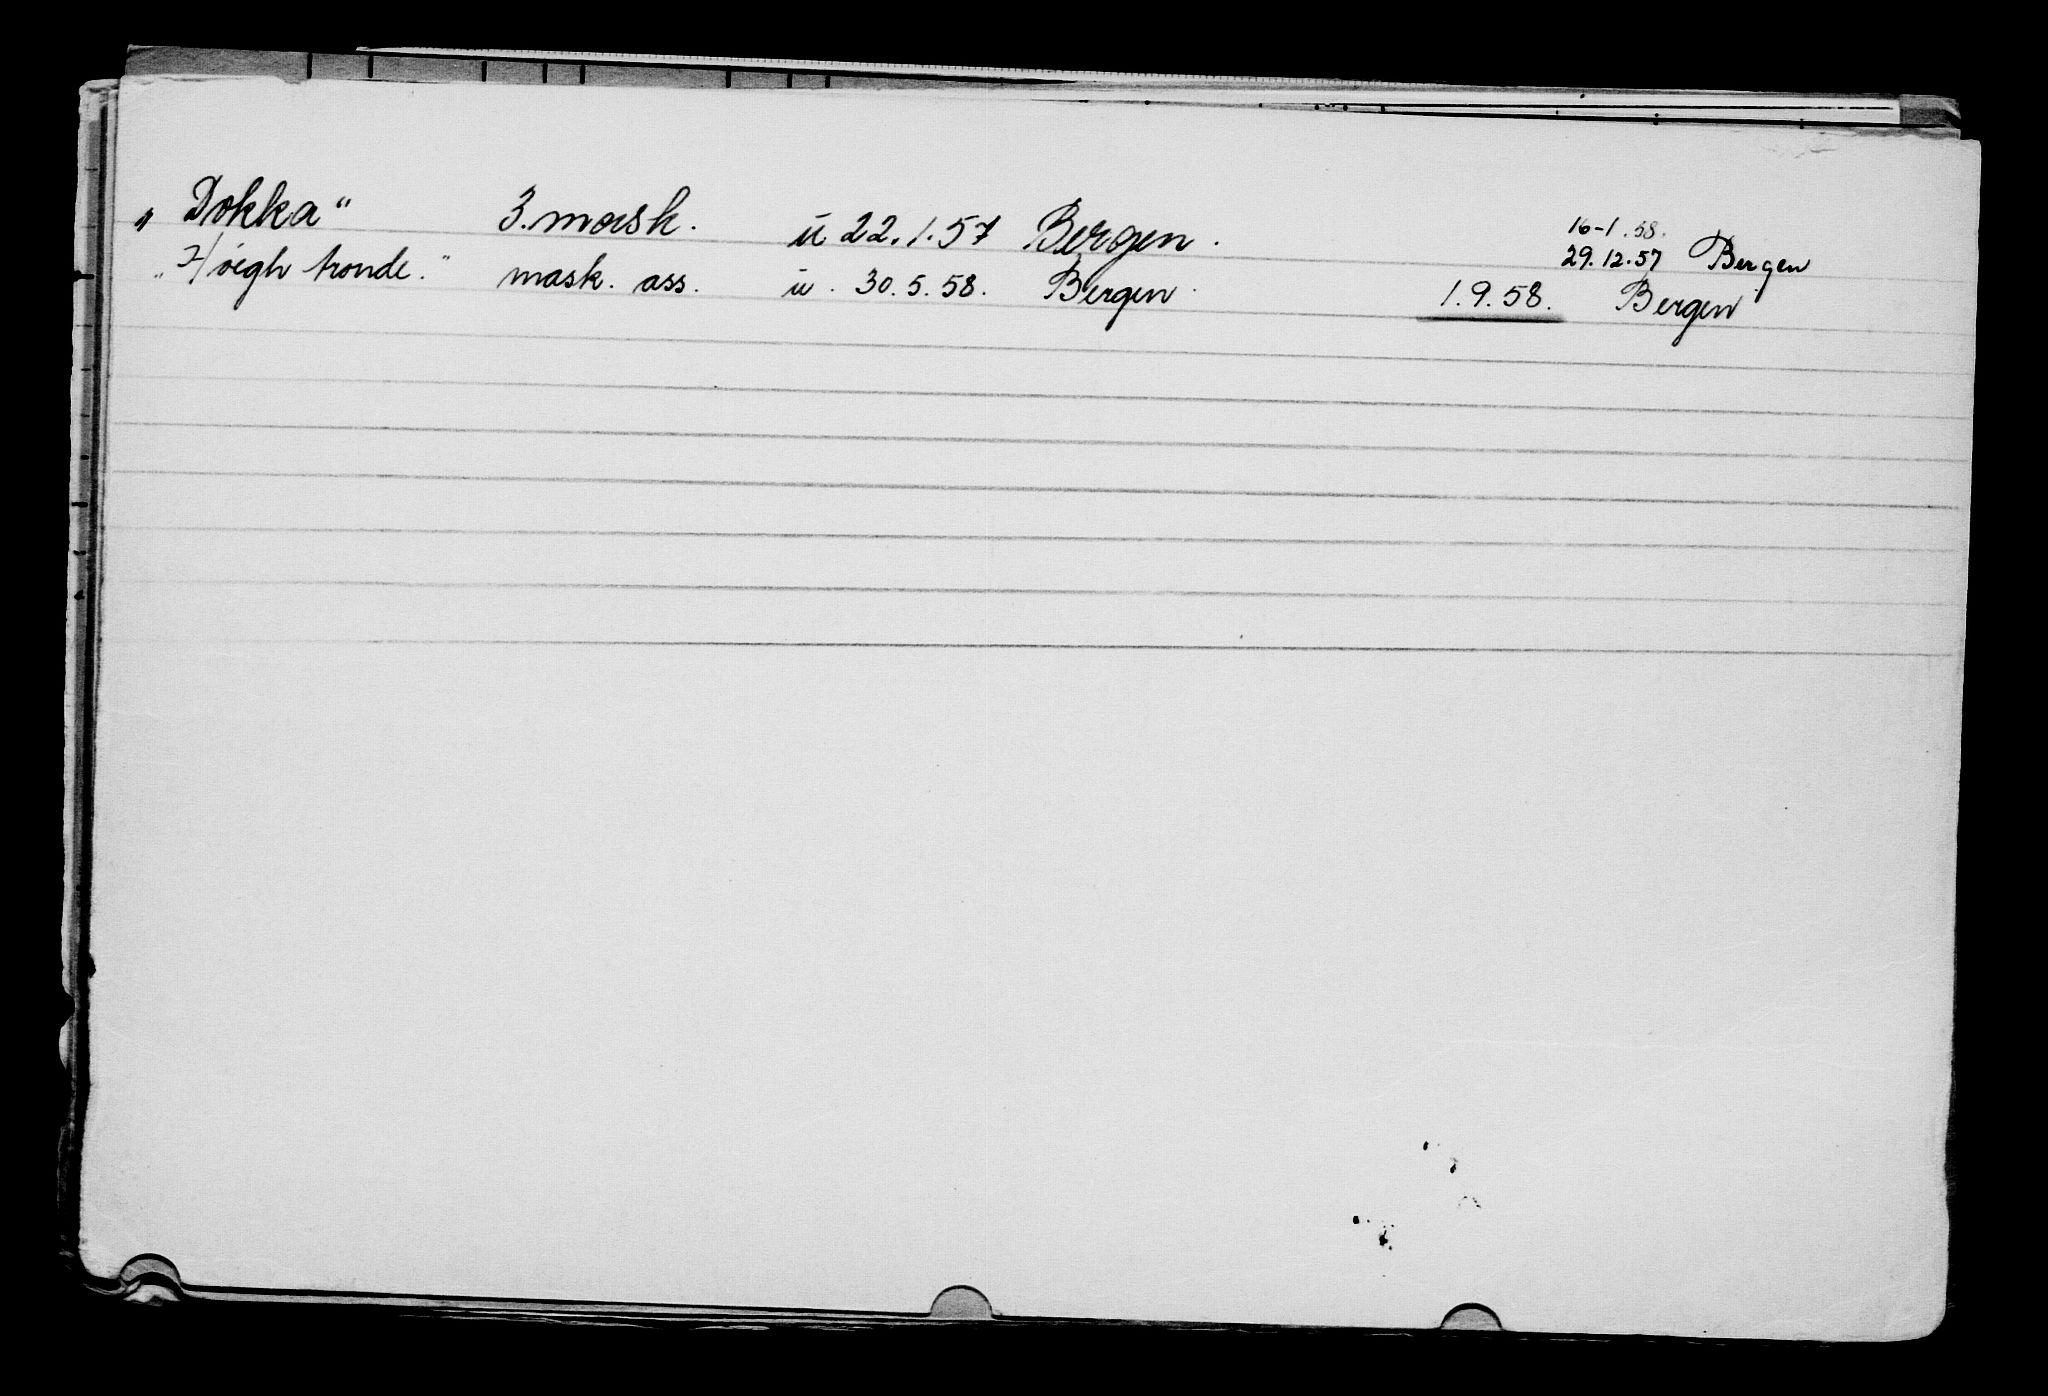 „ Dokka“ 3. mask. ū 22.1.57 Bergen. 16-1.58.
29.12.57 Bergen
„ Høegh tronde.“ mask. ass. ū. 30.5.58. Bergen. 1.9.58. Bergen